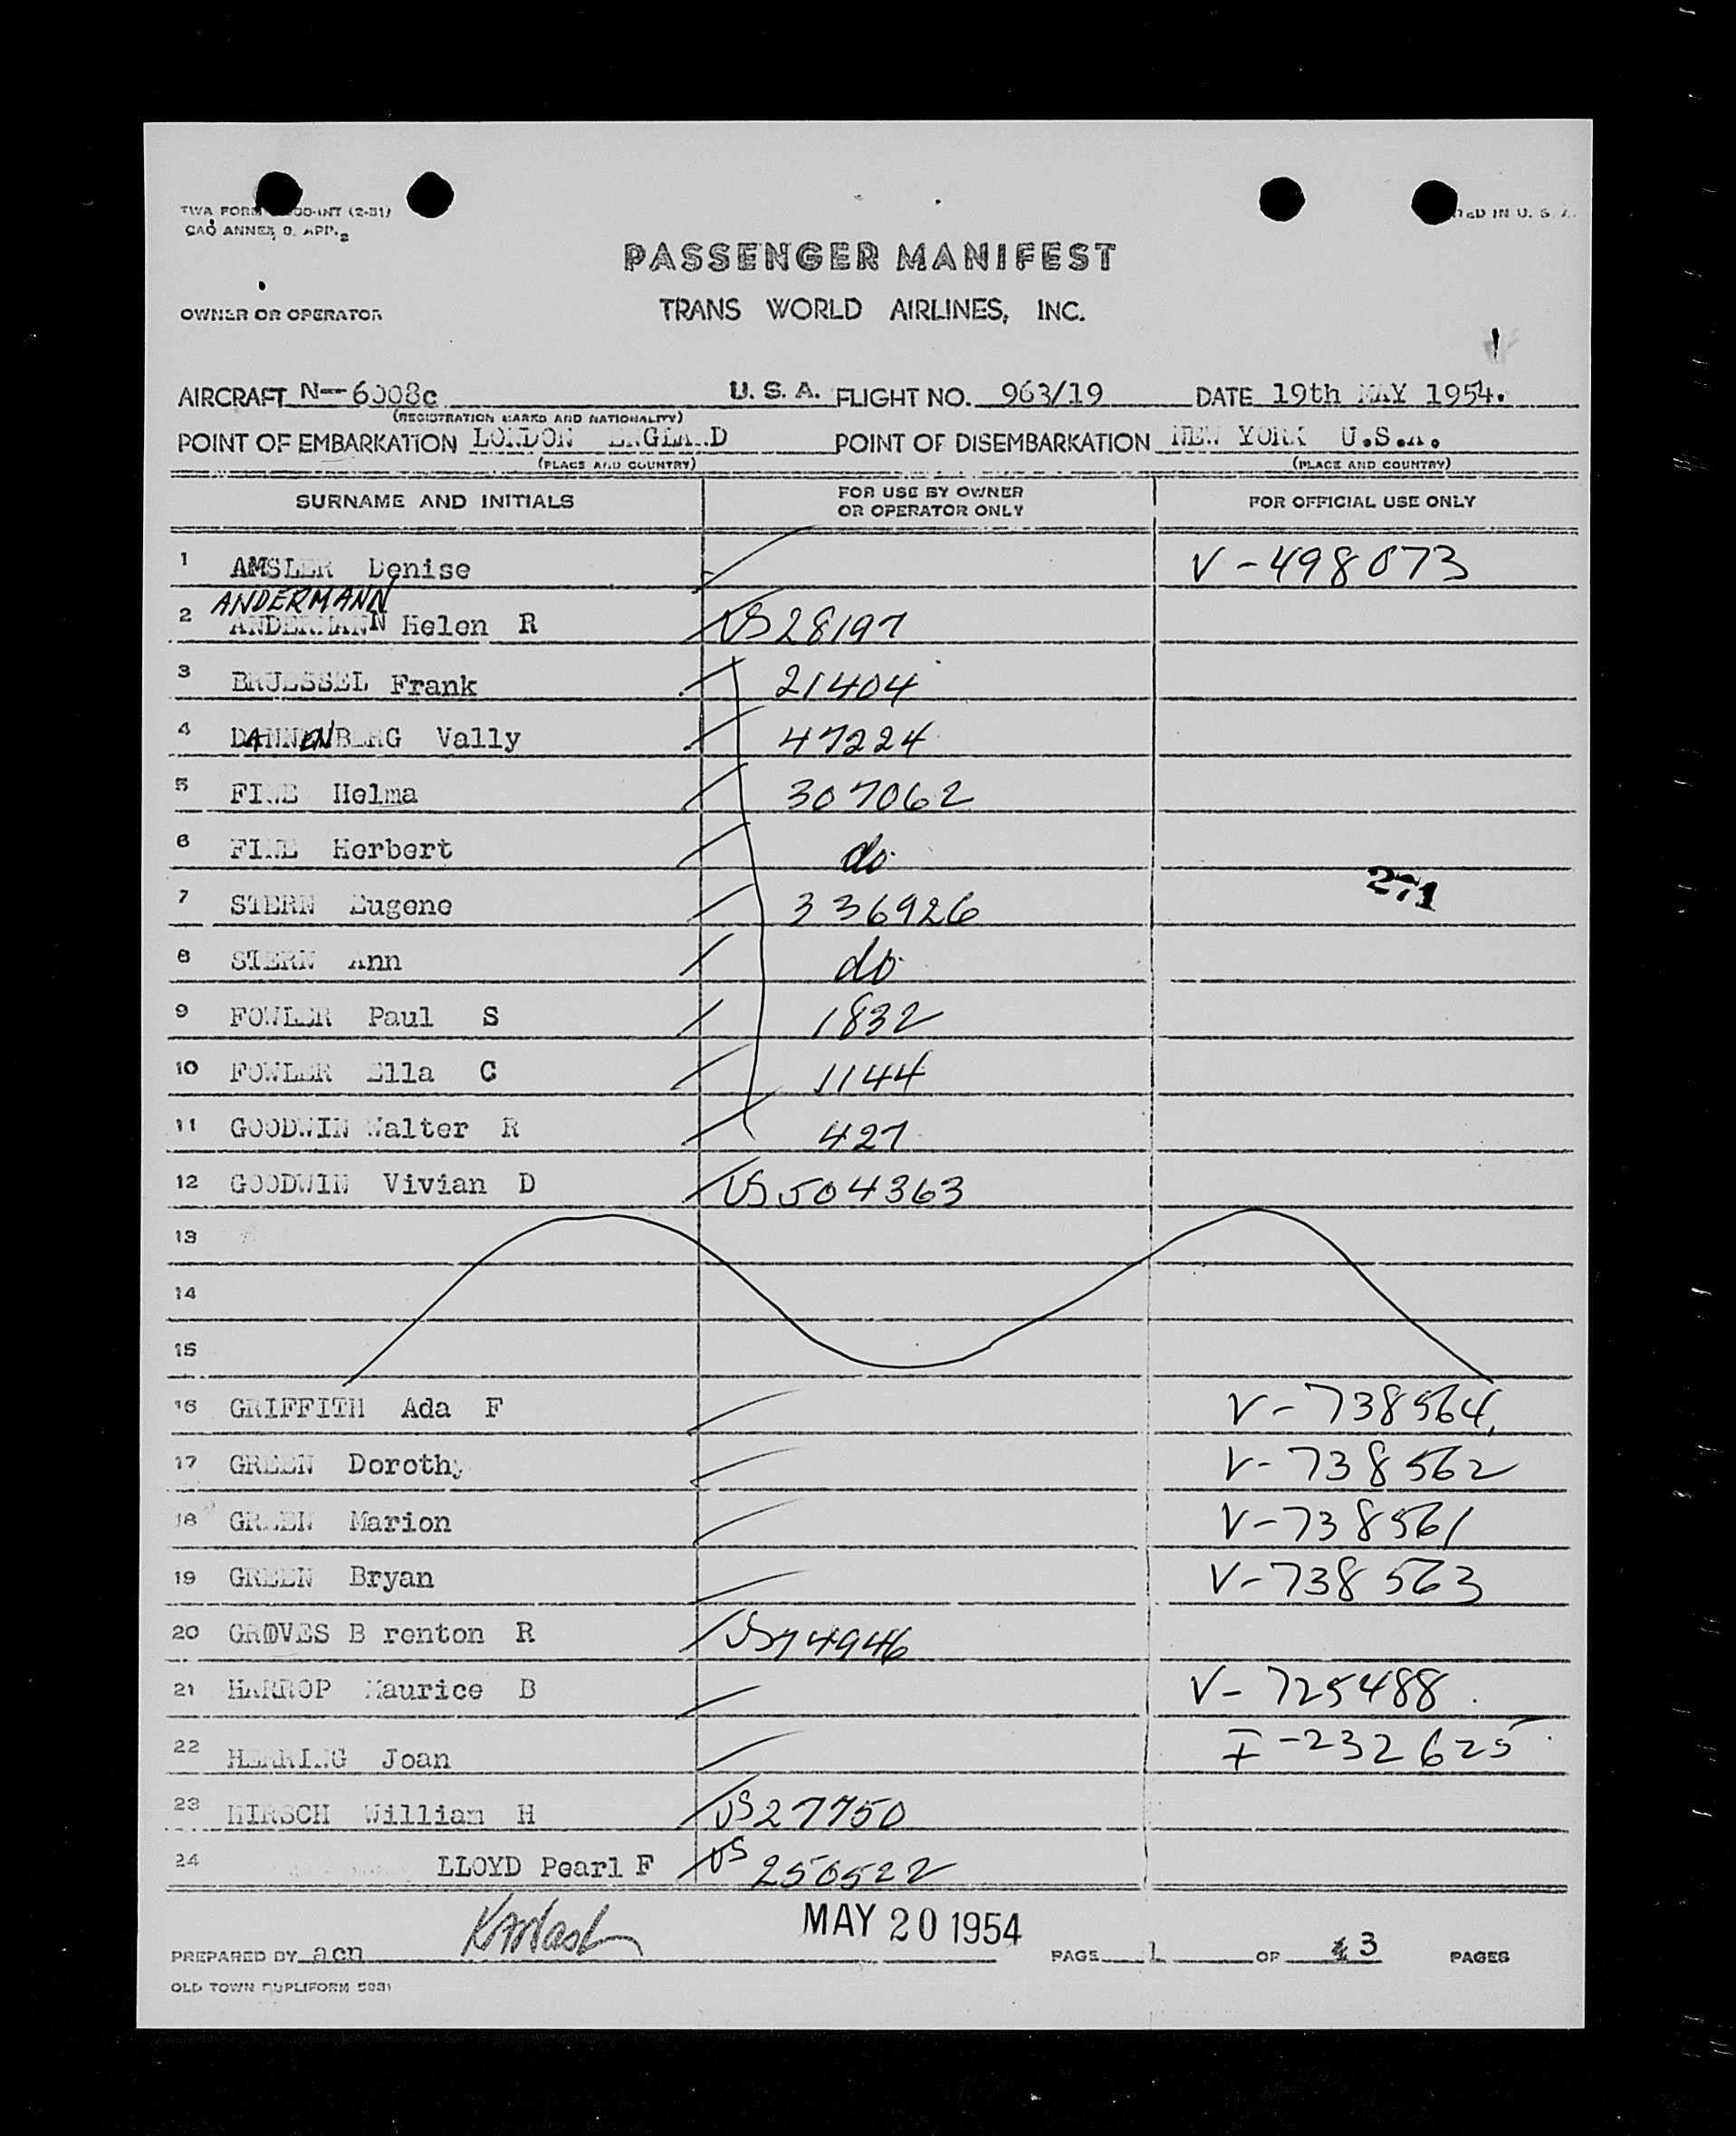 TWA FORM 00-INT (2-51)
CAO ANNEX 9, APP. 2
PASSENGER MANIFEST
OWNER OR OPERATOR TRANS WORLD AIRLINES, INC.
AIRCRAFT N-6008c U. S. A. FLIGHT NO. 963/19 DATE 19th MAY 1954.
(REGISTRATION MARKS AND NATIONALITY)
POINT OF EMBARKATION LONDON ENGLAND POINT OF DISEMBARKATION NEW YORK U.S.A.
(PLACE AND COUNTRY) (PLACE AND COUNTRY)
SURNAME AND INITIALS FOR USE BY OWNER OR OPERATOR ONLY FOR OFFICIAL USE ONLY
1 AMSLER Denise V-498073
ANDERMANN
2 ANDERMANN Helen R US 28197
3 BRUESSEL Frank 21404
4 DANNENBERG Vally 47224
5 FINE Helma 307062
6 FINE Herbert do
271
7 STERN Eugene 336926
8 STERN Ann do
9 FOWLER Paul S 1832
10 FOWLER Ella C 1144
11 GOODWIN Walter R 427
12 GOODWIN Vivian D US 504363
13
14
15
16 GRIFFITH Ada F V-738564
17 GREEN Dorothy V-738562
18 GREEN Marion V-738561
19 GREEN Bryan V-738563
20 GROVES B renton R US 74946
21 HARROP Maurice B V-725488
22 HERRING Joan I-232625
23 HIRSCH William H US 27750
24 LLOYD Pearl F US 250522
MAY 20 1954
PREPARED BY acn PAGE 1 OF 3 PAGES
OLD TOWN DUPLIFORM